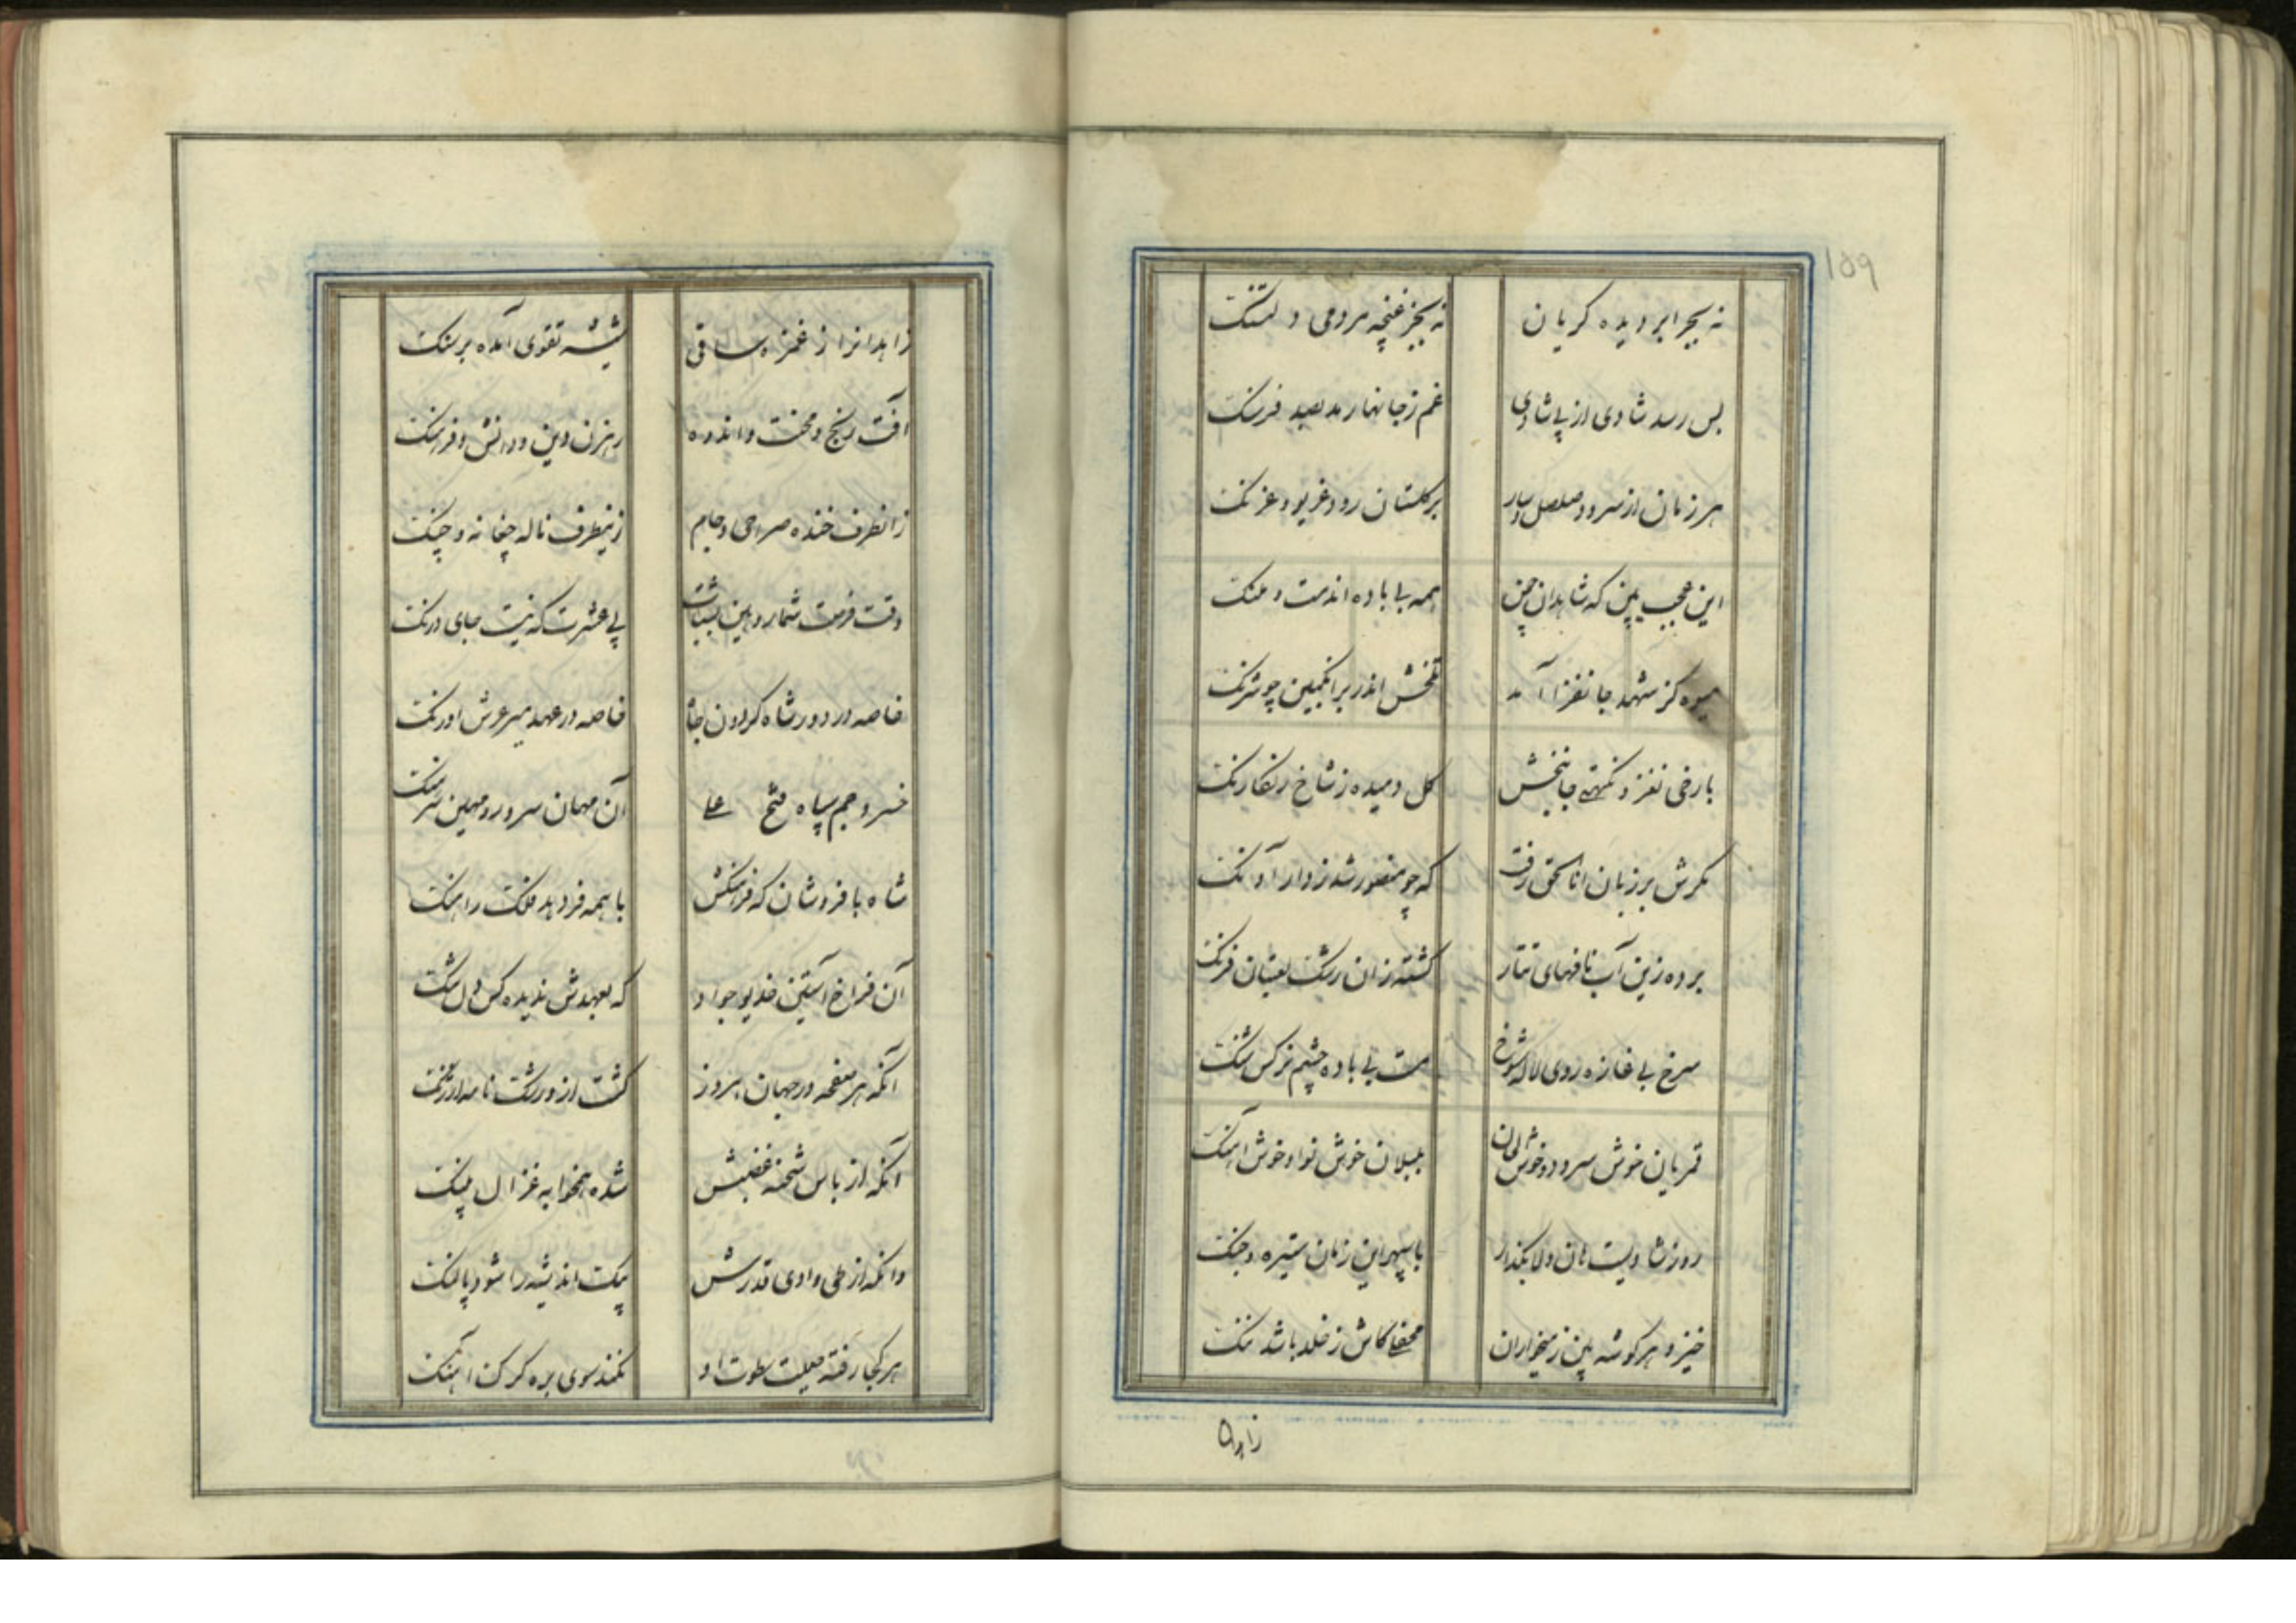 ۱۵۹
نه بجز ابر دیده گریان نه بجز غنچه مردمی دلتنگ
بس رسد شادی از پی شادی غم ز جانها رمد بصد فرسنگ
هر زمان از سرود صلصل و سار بر گلستان رود غریو و غرنگ
این عجب بین که شاهدان چمن همه بی باده اند مست و ملنگ
میوه کز شهد جانفزا آمد تلخش اندر بر انگبین چو شرنگ
با رخی نغز و نکهتی جانبخش گل دمیده ز شاخ رنگارنگ
مگرش بر زبان انا الحق رفت که چو منصور شد ز دار آونگ
برده زین آب نافهای تتار گشته زان رشک لعبتان فرنگ
سرخ بی غازه روی لاله شوخ مست بی باده چشم نرگس شنگ
قمریان خوش سرود و خوش الحان بلبلان خوش نوا و خوش آهنگ
روز شادیست هان دلا بگذار با سپهر این زمان ستیزه و جنگ
خیز و هر گوشه بین ز میخواران محفلی کاش ز خلد باشد ننگ
زاهدا
زاهدانرا ز غمزه ساقی شیشه تقوی آمده بر سنگ
آفت رنج و محنت و اندوه رهزن دین و دانش و فرهنگ
زانطرف خنده صراحی و جام زینطرف ناله چغانه و چنگ
وقت فرصت شمار و هین بشتاب پی عشرت که نیست جای درنگ
خاصه در دور شاه گردون جاه خاصه در عهد میر عرش اورنگ
خسرو جم سپاه فتح علی آن مهان سرور و مهین سرهنگ
شاه با فر و شان که فرهنگش با همه فر دهد فلک را هنگ
آن فراخ آستین خدیو جواد که بعهدش ندیده کس دل تنگ
آنکه هر صفحه در جهان امروز گشت ازو رشک نامه ارژنگ
آنکه از باس شحنه غضبش شده همخوابه غزال پلنگ
وانکه از طی وادی قدرش پیک اندیشه را شود پا لنگ
هر کجا رفته صیت سطوت او نکند سوی بره گرگ آهنگ